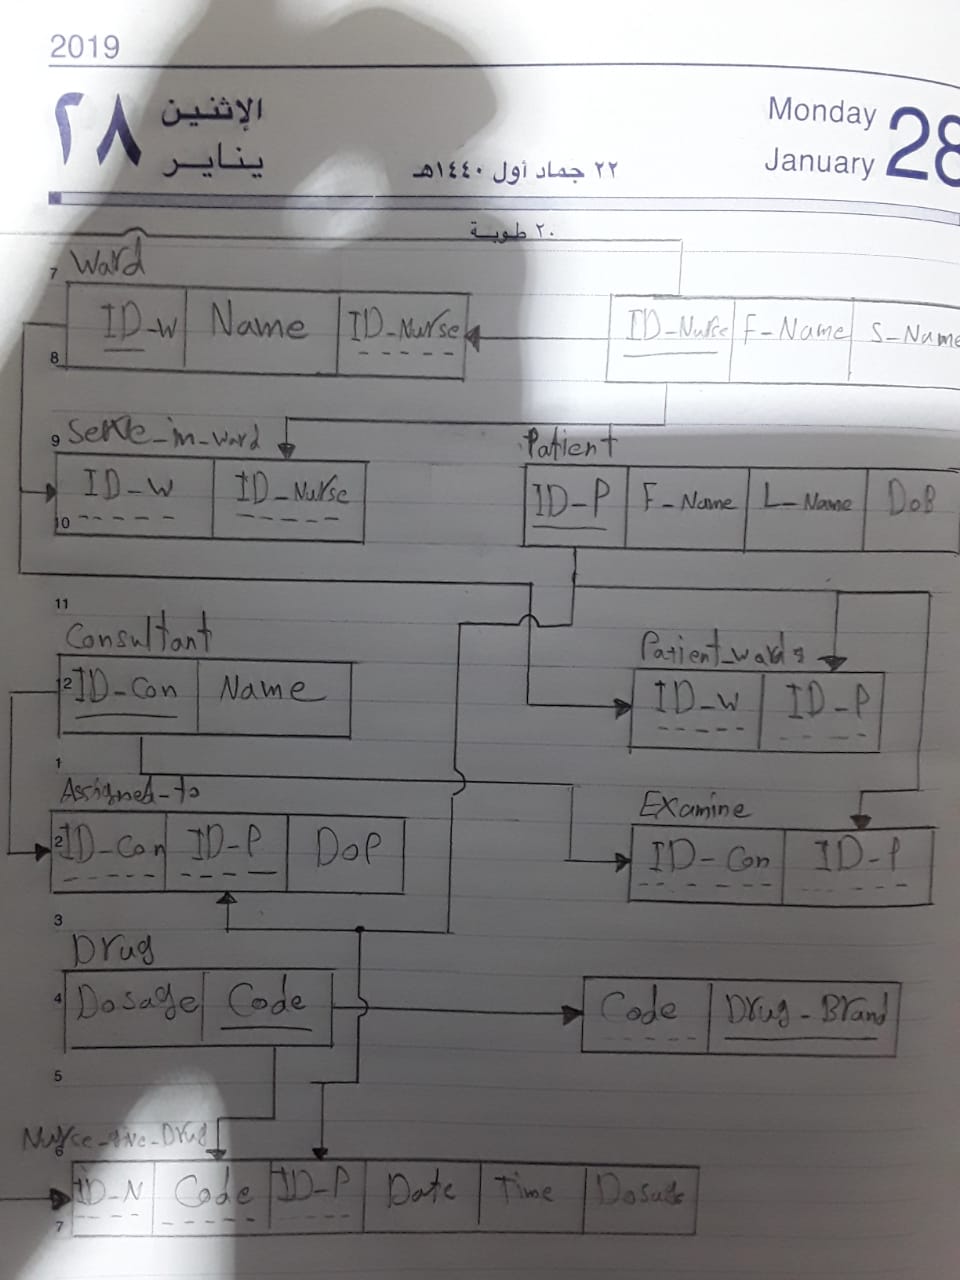 2019
٢٨ الإثنين يناير
٢٢ جماد أول ١٤٤٠هـ
Monday January 28
٢٠ طوبة
7 Ward
ID-W Name ID-Nurse
ID-Nurse F-Name S-Name
8
9 Serve-in-ward
ID-W ID-Nurse
10
Patient
ID-P F-Name L-Name DoB
11
Consultant
12 ID-Con Name
Patient-wards
ID-W ID-P
1
Assigned-to
2 ID-Con ID-P DoP
Examine
ID-Con ID-P
3
Drug
4 Dosage Code
Code Drug-Brand
5
Nurse-give-Drug
6
ID-N Code ID-P Date Time Dosage
7